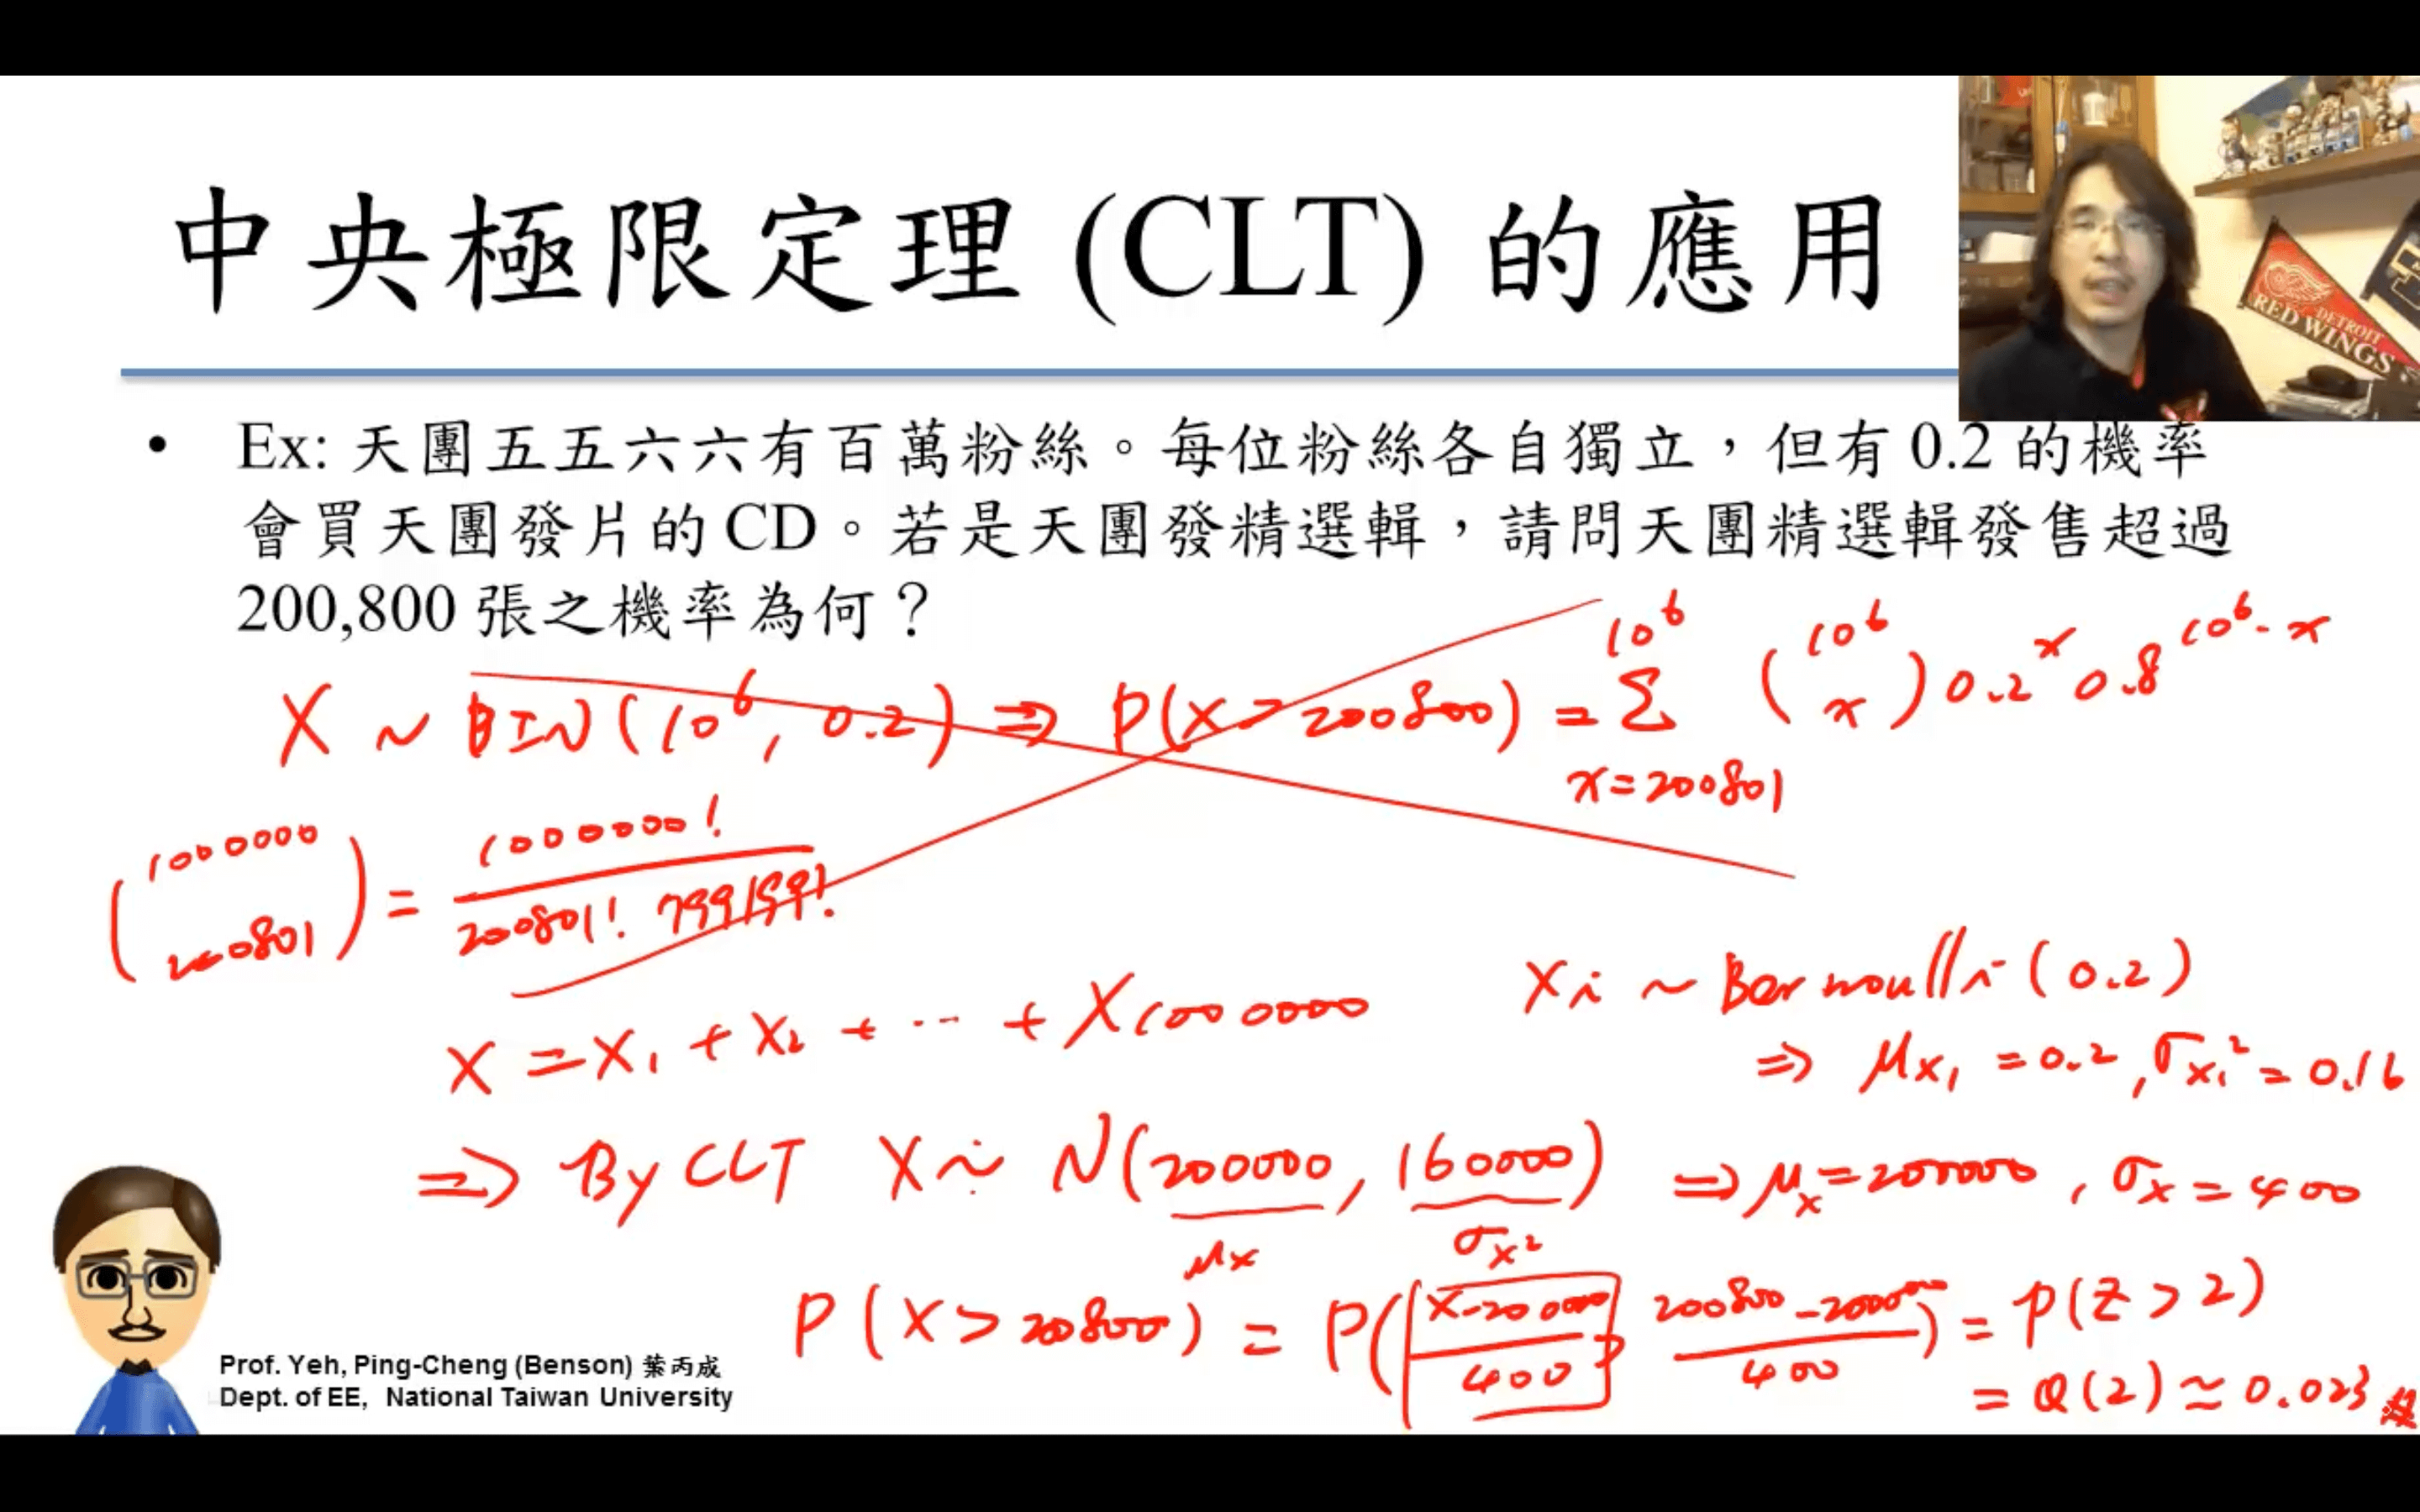 中央極限定理 (CLT) 的應用
DETROIT
RED WINGS
• Ex: 天團五五六六有百萬粉絲。每位粉絲各自獨立，但有 0.2 的機率
會買天團發片的 CD。若是天團發精選輯，請問天團精選輯發售超過
200,800 張之機率為何？
X ~ BIN(10^6, 0.2) ⇒ P(X > 200800) = Σ_{x=200801}^{10^6} (10^6 x) 0.2^x 0.8^{10^6-x}
(1000000 200801) = 1000000! / 200801! 799199!
X = X₁ + X₂ + ... + X1000000
Xi ~ Bernoulli(0.2)
⇒ μx₁ = 0.2, σx₁² = 0.16
⇒ By CLT X ~ N(200000, 160000) ⇒ μx = 200000, σx = 400
μx σx²
P(X > 200800) = P((X-200000)/400 > (200800-200000)/400) = P(Z > 2)
= Q(2) ≈ 0.023 #
Prof. Yeh, Ping-Cheng (Benson) 葉丙成
Dept. of EE, National Taiwan University